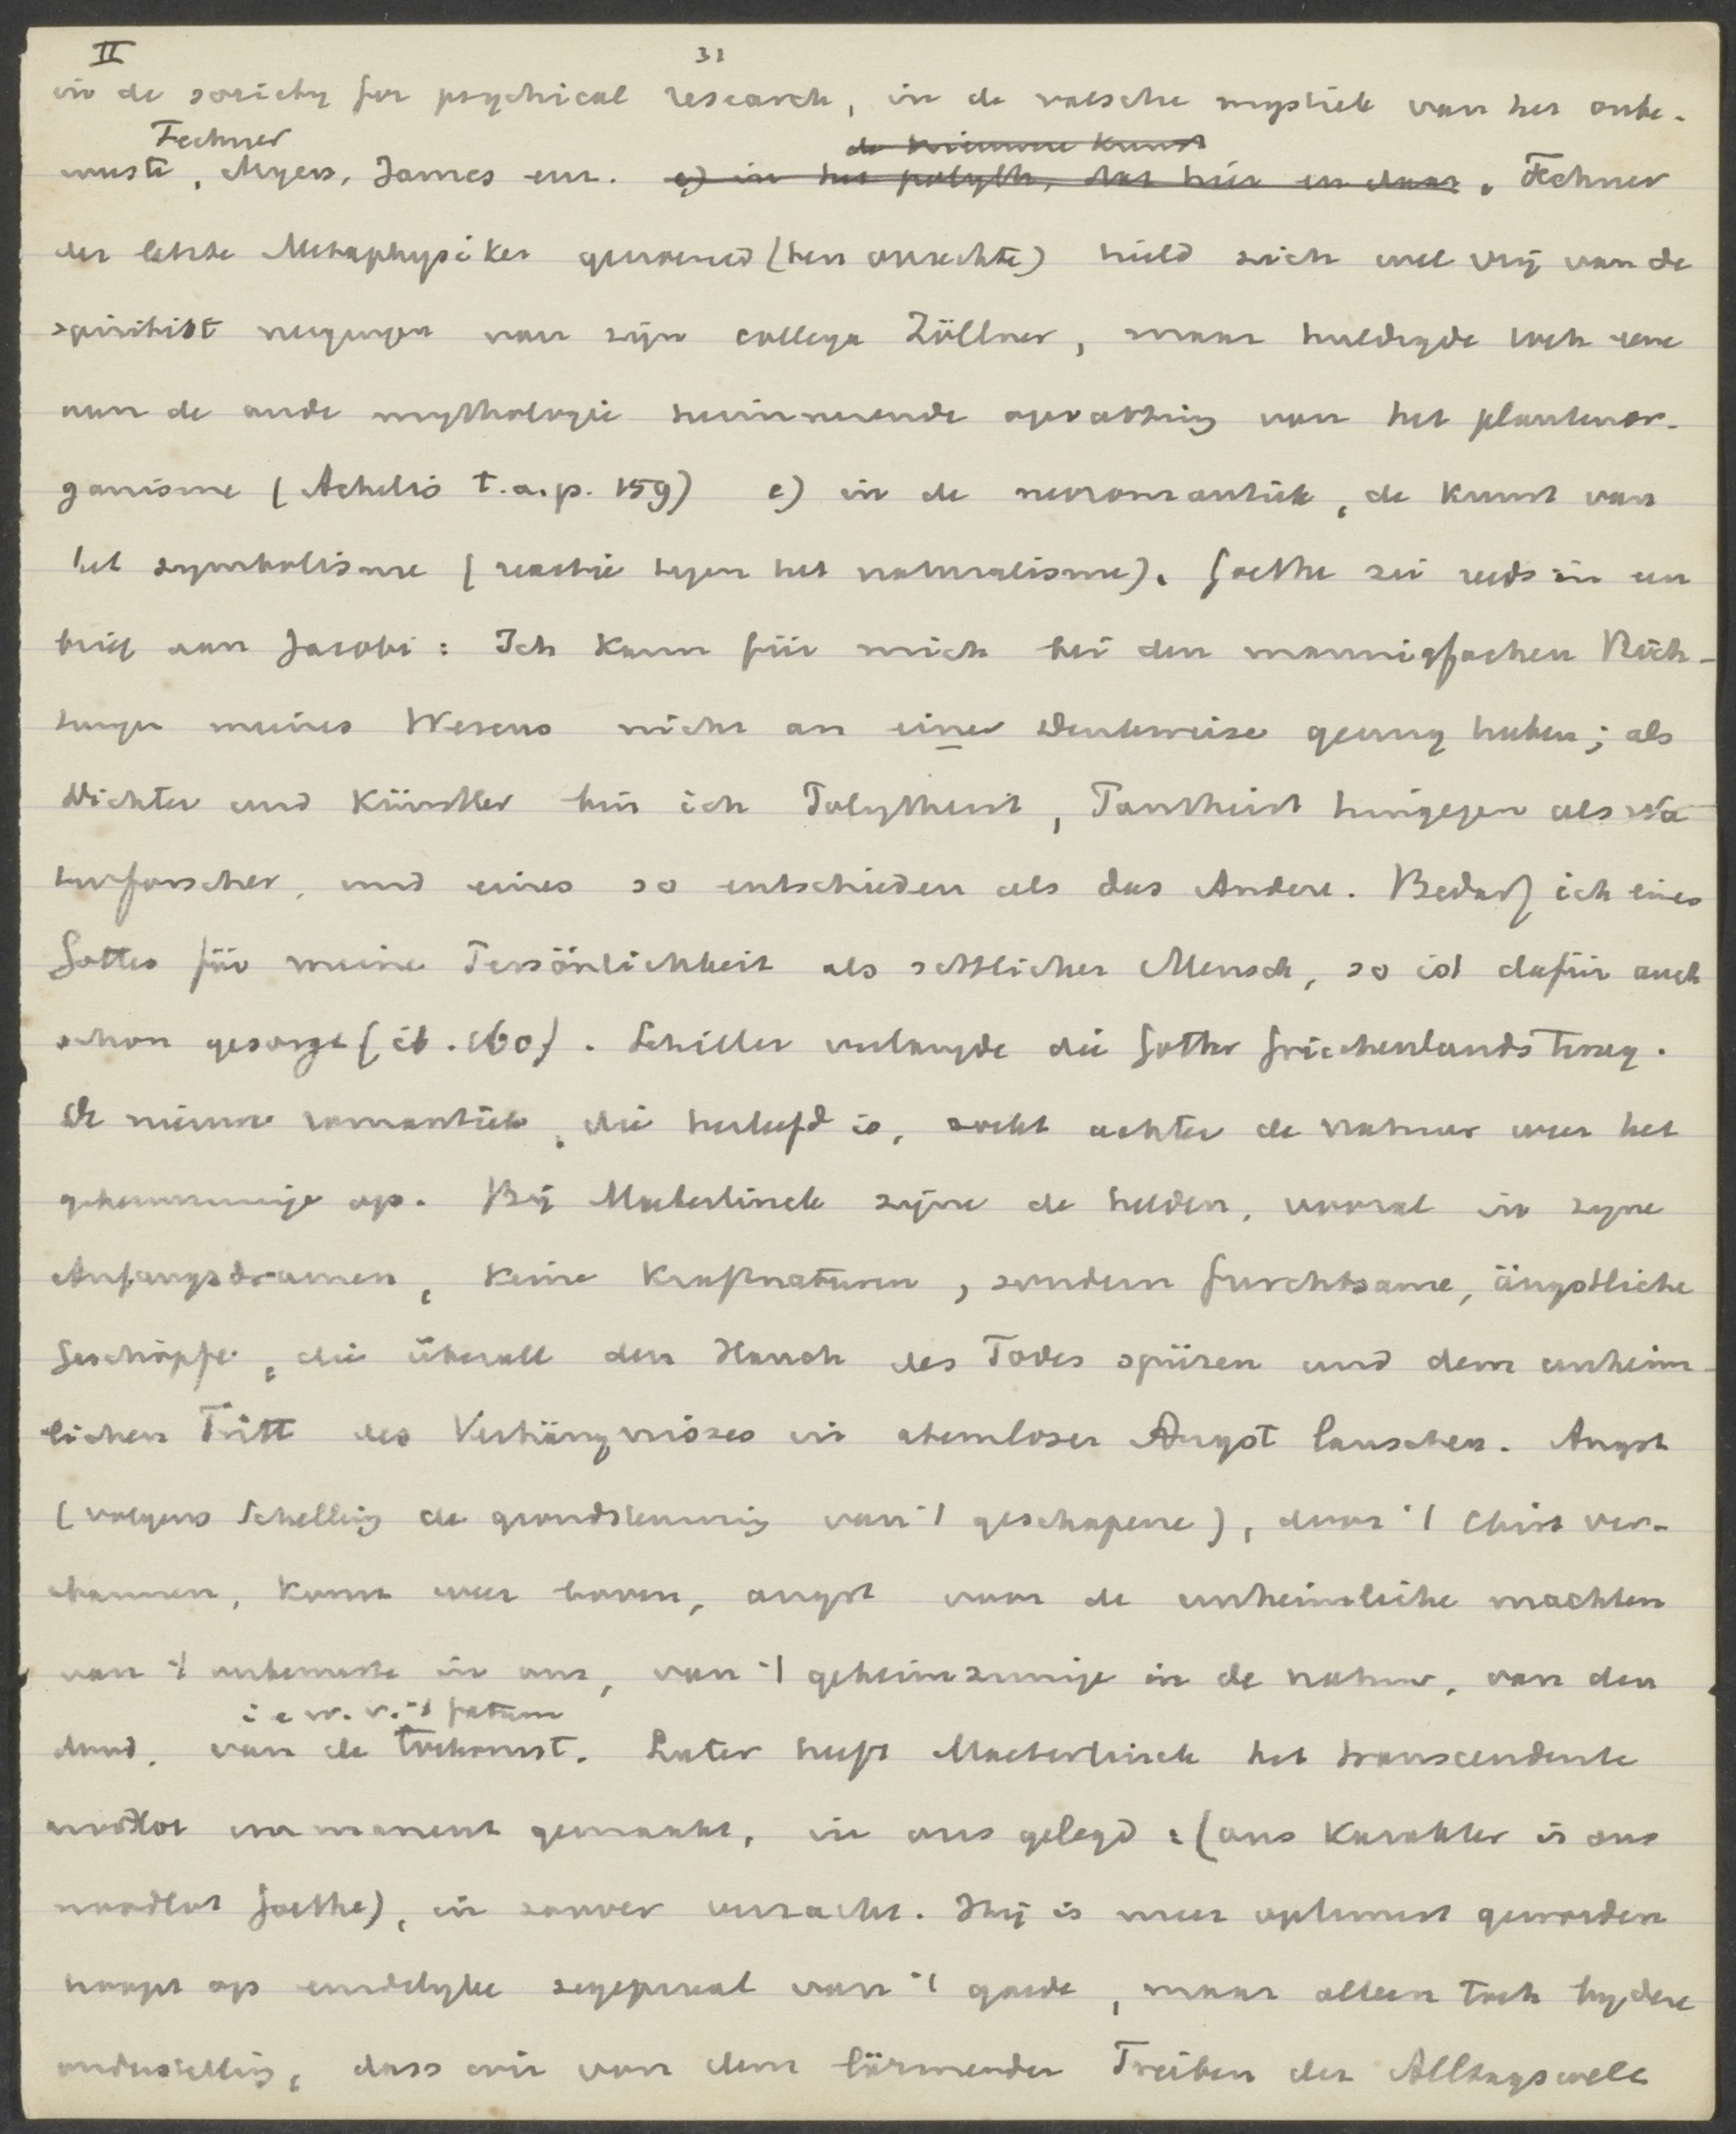 II 31
in de society for psychical research, in de valsche mystiek van het onbe-
Fechner de nieuwe Kunst
wuste, Myers, James enz. e) in het polyth, dat hier en daar. Fechner
der letzte Metaphysiker genoemd (ten onrechte) hield zich wel vrij van de
spiritist neigingen van zijn collega Zöllner, maar huldigde toch eene
aan de oude mythologie herinnerende opvatting van het plantenor-
ganisme (Achelis t.a.p. 159) e) in de neoromantiek, de Kunst van
het symbolisme (reactie tegen het naturalisme). Goethe zei reeds in een
brief aan Jacobi: Ich kann für mich bei den mannigfachen Rich-
tungen meines Wesens nicht an einer Denkweise genug haben; als
Dichter und Künstler bin ich Polytheist, Pantheist hingegen als Na-
turforscher, und eines so entschieden als das Andere. Bedarf ich eines
Gottes für meine Persönlichkeit als sittlicher Mensch, so ist dafür auch
schon gesorgt (ib. 160). Schiller verlangde die Götter Griechenlands terug.
De nieuwe romantiek, die herleefd is, zoekt achter de natuur weer het
geheimzinnige op. Bij Maeterlinck zijne de helden, vooral in zijne
Anfangsdramen, keine Kraftnaturen, sondern furchtsame, ängstliche
Geschöpfe, die überall den Hauch des Todes spüren und dem unheim-
lichen Tritt des Verhängnisses in atemloser Angst lauschen. Angst
(volgens Schelling de grondstemming van 't geschapene), door 't Christ ver-
bannen, komt weer boven, angst voor de unheimliche machten
van 't onbewuste in ons, van 't geheimzinnige in de natuur, van den
i e w. v. 't fatum
dood, van de toekomst. Later heeft Maeterlinck het transcendente
noodlot immanent gemaakt, in ons gelegd: (ons karakter is ons
noodlot Goethe), in zoover verzacht. Hij is meer optimist geworden
hoopt op eindelyke zegepraal van 't goede, maar alleen toch lydere
onderstelling, dass wir von dem lärmenden Treiben der Alltagswelt